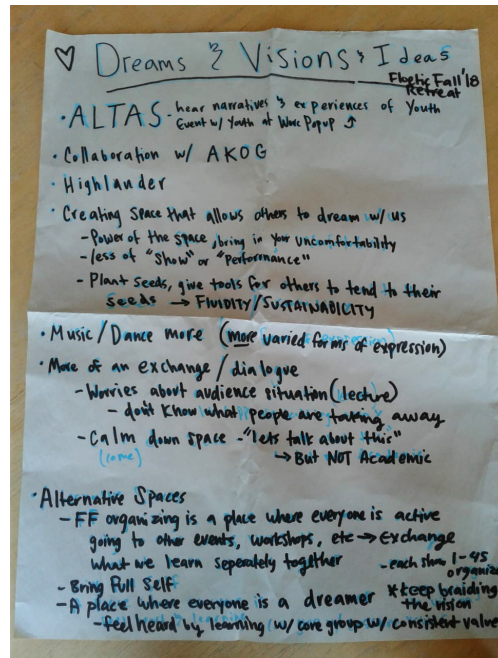 ♡ Dreams & Visions & Ideas
Floetic Fall '18
Retreat
• ALTAS - hear narratives & experiences of Youth
Event w/ Youth at Work Popup ↑
• Collaboration w/ AKOG
• Highlander
• Creating space that allows others to dream w/ us
- Power of the space, bring in your uncomfortability
- less of "Show" or "Performance"
- Plant seeds, give tools for others to tend to their
seeds → FLUIDITY/SUSTAINABILITY
• Music/Dance more (more varied forms of expression)
• More of an exchange/dialogue
- Worries about audience situation (lecture)
- don't know what people are taking away
- Calm down space - "lets talk about this"
(some)
↳ But NOT Academic
• Alternative Spaces
- FF organizing is a place where everyone is active
going to other events, workshops, etc → exchange
what we learn seperately together
- each show 1-45
organize
- Bring Full Self
* keep braiding
the vision
- A place where everyone is a dreamer
- feel heard by learning w/ core group w/ consistent value